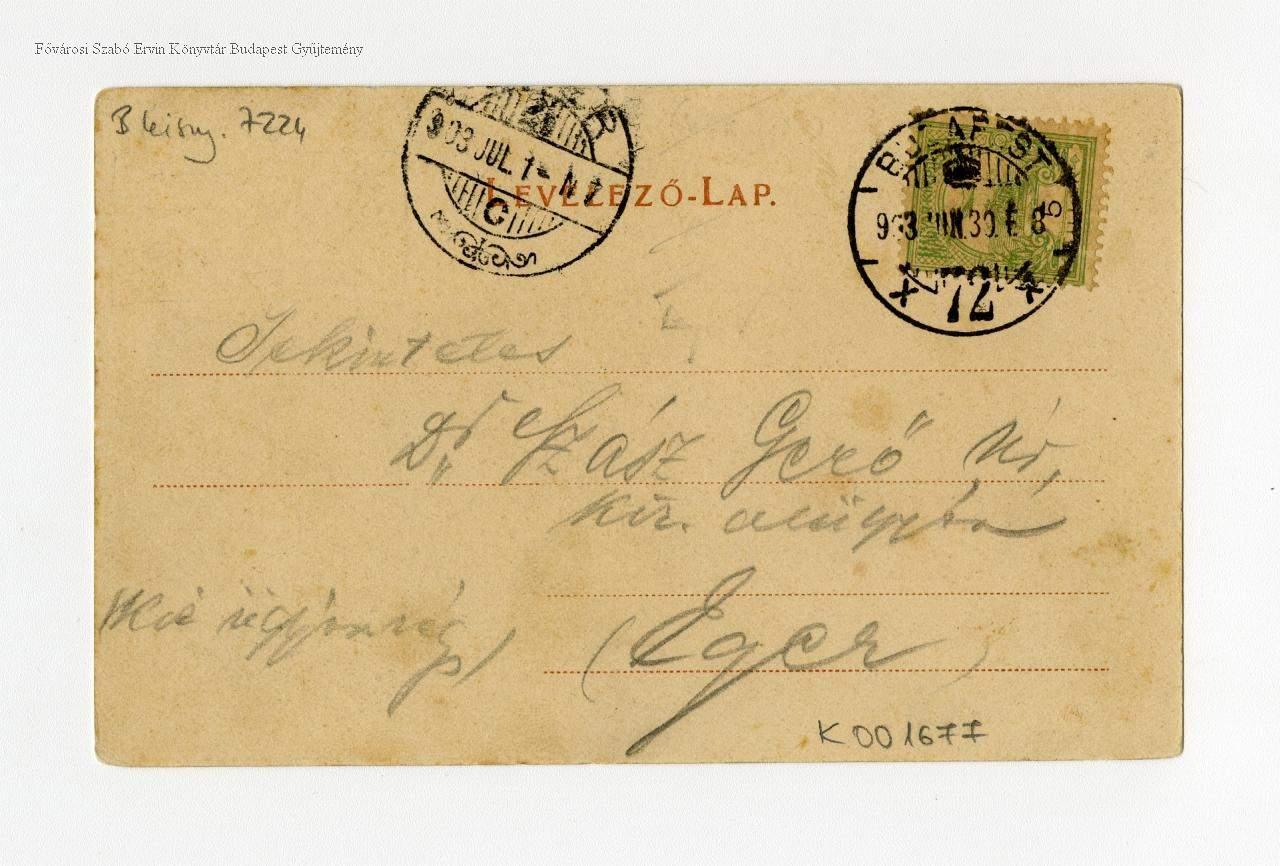 Fővárosi Szabó Ervin Könyvtár Budapest Gyűjtemény
B kisny. 7224
903 JUL. 1
C
LEVELEZŐ-LAP.
BUDAPEST
903 JUN. 30. 8
72
Tekintetes
Dr. Szász Gerő Úr,
kir. alügyész
Kir. ügyészség
(Eger)
K 001677